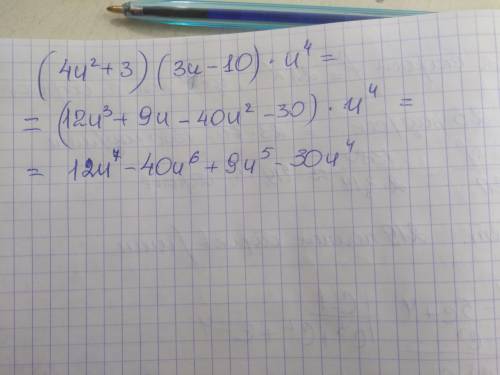 (4u² + 3)(3u - 10) · u⁴ =
= (12u³ + 9u - 40u² - 30) · u⁴ =
= 12u⁷ - 40u⁶ + 9u⁵ - 30u⁴